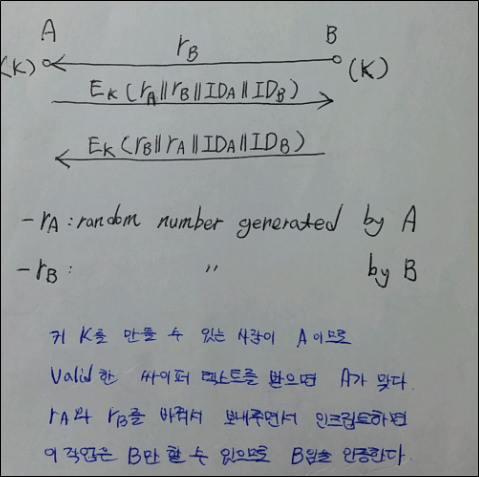 A B
r_B
(K) (K)
E_K(r_A||r_B||ID_A||ID_B)
E_K(r_B||r_A||ID_A||ID_B)
- r_A : random number generated by A
- r_B : 〃 by B
키 K를 만들 수 있는 사람이 A이므로
Valid한 싸이퍼 텍스트를 받으면 A가 맞다.
r_A와 r_B를 바꿔서 보내주면서 인크립트하면
이 작업은 B만 할 수 있으므로 B임을 인증한다.